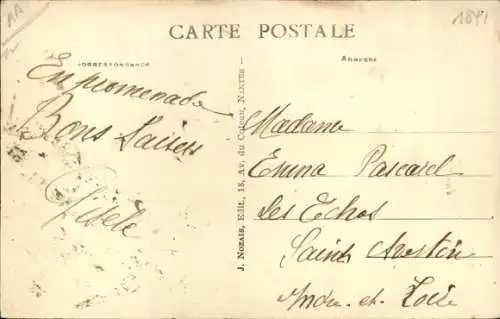 AA
1841
CARTE POSTALE
CORRESPONDANCE
ADRESSE
En promenade
Bons Baisers
Gisèle
J. Nozais, Edit., 15, Av. du Coteau, NANTES
Madame
Emma Pascarel
Les Echos
Saint Avertin
Indre-et-Loire